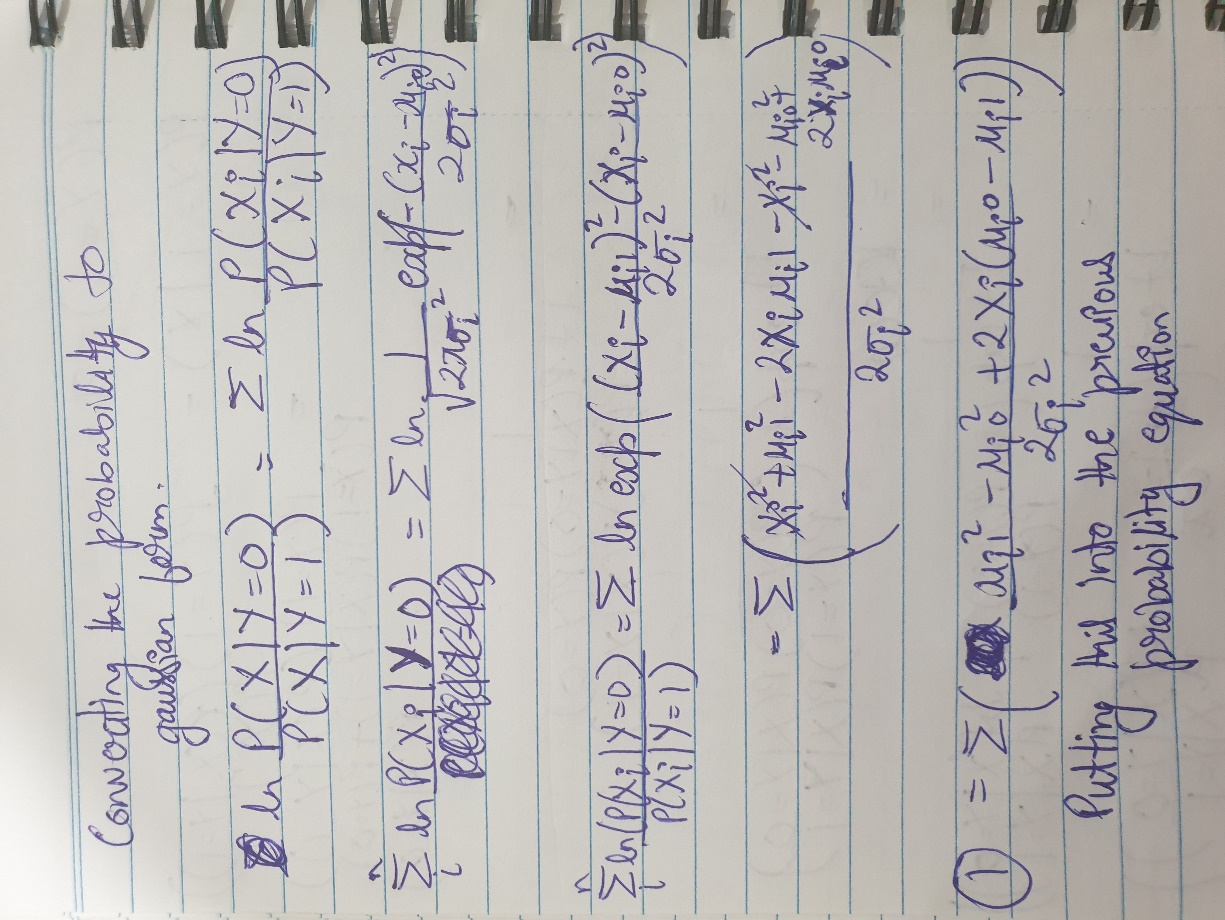 Converting the probability to
gaussian form.
ln P(X|Y=0) / P(X|Y=1) = Σ ln P(Xi|Y=0) / P(Xi|Y=1)
Σ_i^n ln P(Xi|Y=0) = Σ ln 1/√2πσi² exp(-(xi-μi0)² / 2σi²)
Σ_i^n ln(P(Xi|Y=0) / P(Xi|Y=1)) = Σ ln exp((xi-μi1)²-(xi-μi0)² / 2σi²)
= Σ(xi²+μi1²-2xiμi1-xi²-μi0²+2xiμi0 / 2σi²)
① = Σ(μi1²-μi0²+2xi(μi0-μi1) / 2σi²)
Putting this into the previous
probability equation